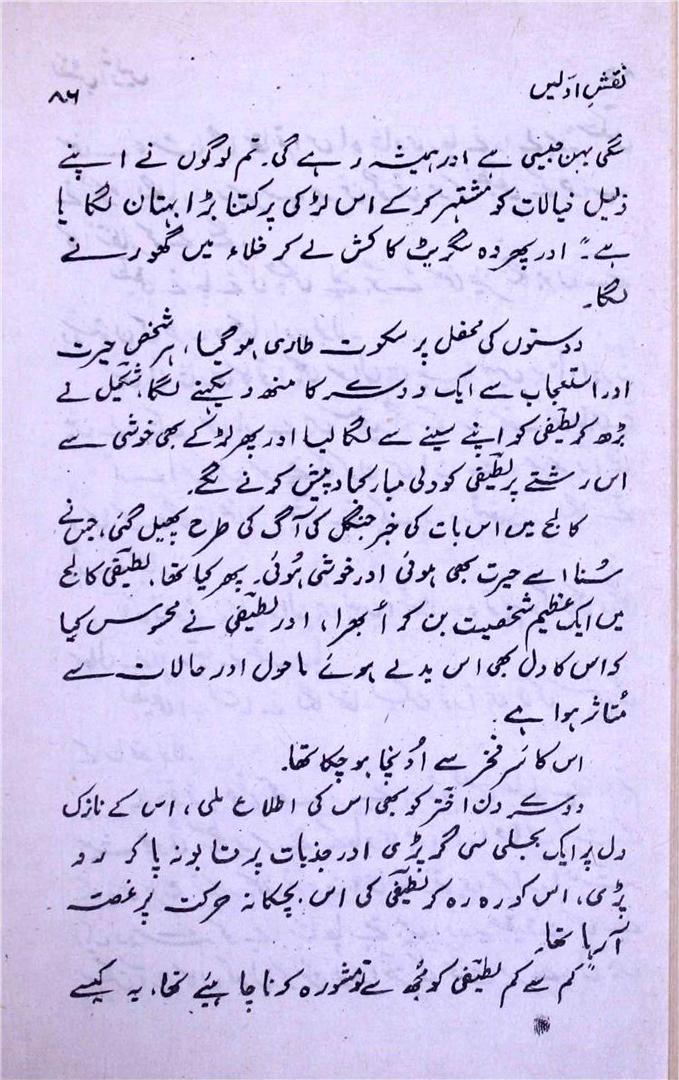 نقشِ اوّلیں
۸۶
سگی بہن جیسی ہے اور ہمیشہ رہے گی۔ تم لوگوں نے اپنے
ذلیل خیالات کو مشتہر کر کے اس لڑکی پر کتنا بڑا بہتان لگا یا
ہے۔" اور پھر وہ سگریٹ کا کش لے کر خلاء میں گھورنے
لگا۔
دوستوں کی محفل پر سکوت طاری ہو گیا، ہر شخص حیرت
اور استعجاب سے ایک دوسرے کا منھ دیکھنے لگا، شکیل نے
بڑھ کر لطیفی کو اپنے سینے سے لگا لیا اور پھر لڑکے بھی خوشی سے
اس رشتے پر لطیفی کو دلی مبارکباد پیش کرنے لگے۔
کالج میں اس بات کی خبر جنگل کی آگ کی طرح پھیل گئی، جس نے
سُنا اسے حیرت بھی ہوئی اور خوشی ہُوئی۔ پھر کیا تھا، لطیفی کالج
میں ایک عظیم شخصیت بن کر اُبھرا، اور لطیفی نے محسوس کیا
کہ اس کا دل بھی اس بدلے ہوئے ماحول اور حالات سے
مُتاثر ہوا ہے۔
اس کا سَر فخر سے اُونچا ہو چکا تھا۔
دوسرے دن اختر کو بھی اس کی اطلاع ملی، اس کے نازک
دل پر ایک بجلی سی گر پڑی اور جذبات پر قابو نہ پا کر رو
پڑی، اس کو رہ رہ کر لطیفی کی اس بچکانہ حرکت پر غصّہ
آ رہا تھا۔
"کم سے کم لطیفی کو مُجھ سے تو مشورہ کرنا چاہئیے تھا، یہ کیسے